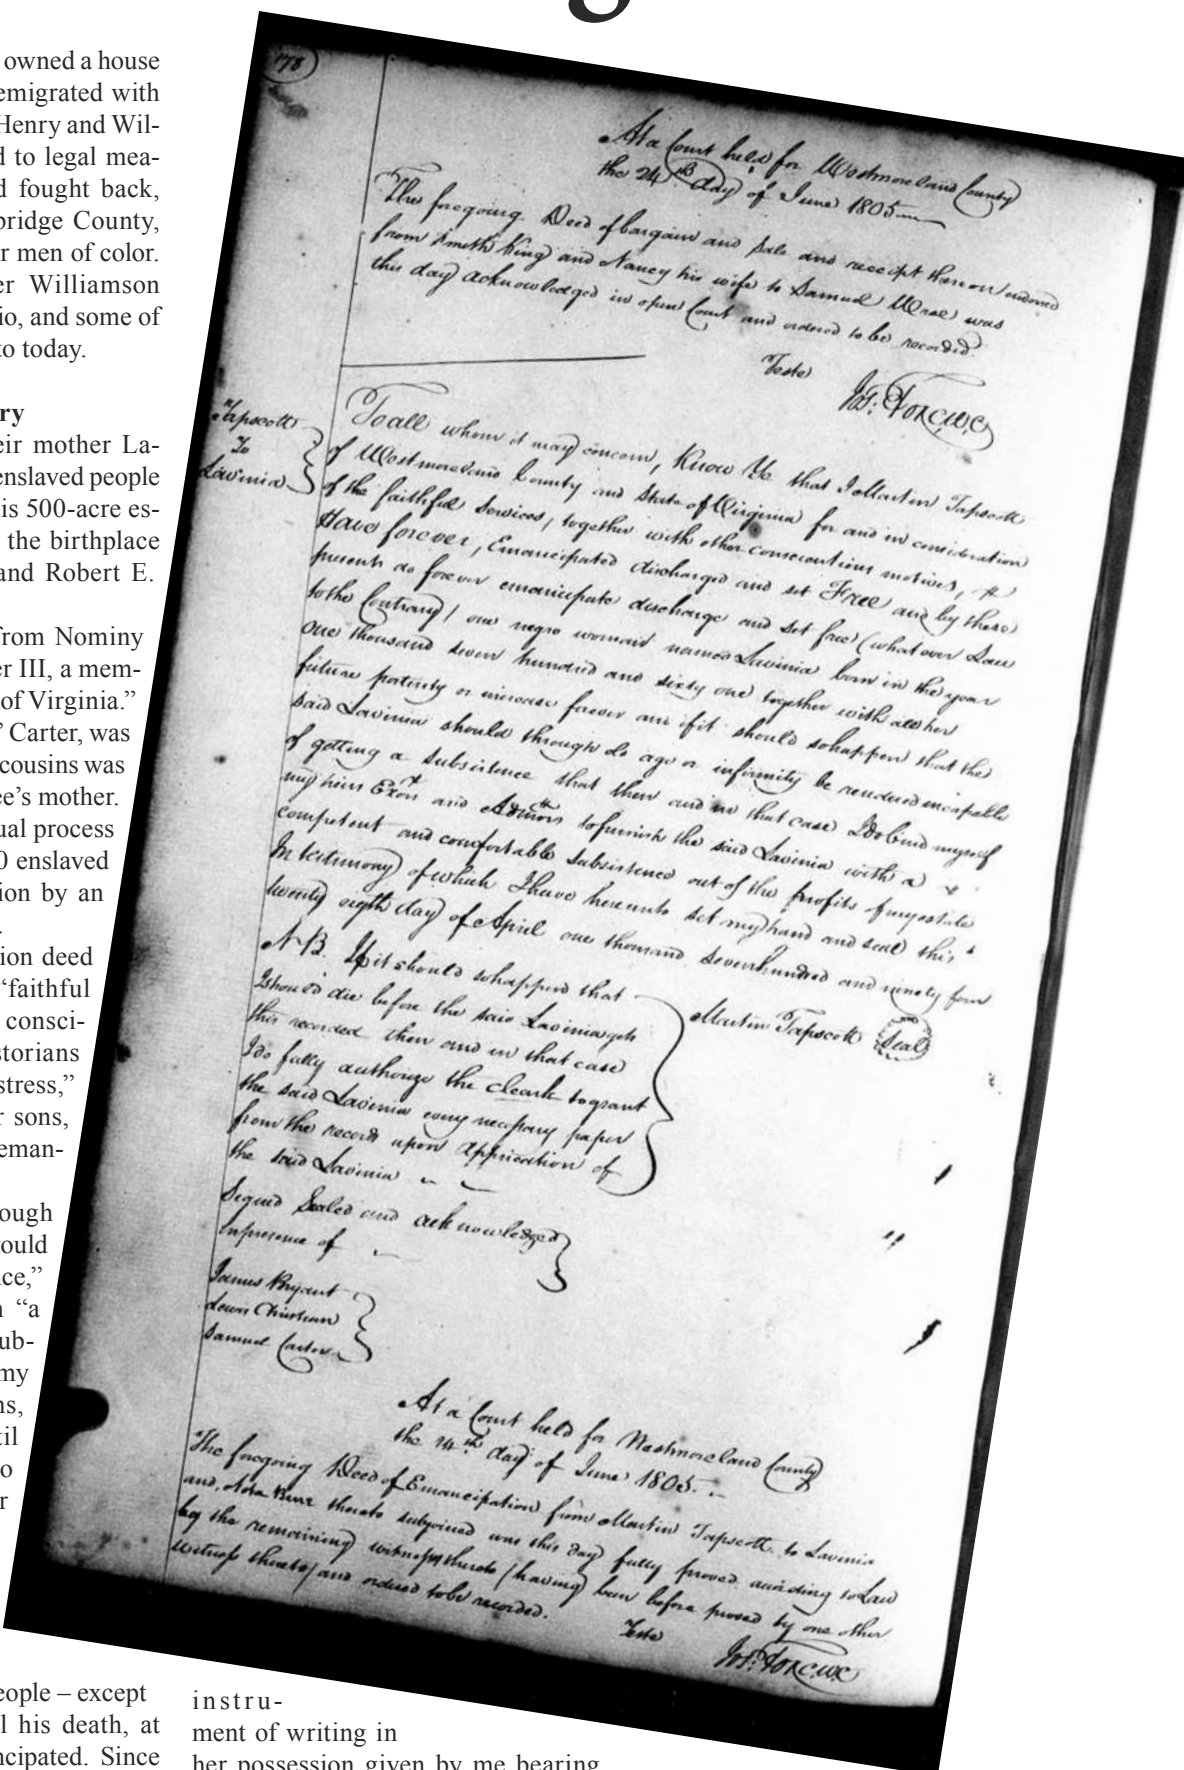 owned a house
emigrated with
Henry and Wil-
d to legal mea-
d fought back,
bridge County,
r men of color.
er Williamson
io, and some of
to today.
ry
eir mother La-
enslaved people
is 500-acre es-
the birthplace
and Robert E.
from Nominy
er III, a mem-
of Virginia.”
’ Carter, was
cousins was
ee’s mother.
ual process
0 enslaved
ion by an
ion deed
“faithful
consci-
storians
stress,”
r sons,
eman-
ough
would
ce,”
n “a
ub-
my
ns,
til
o
r
eople – except
l his death, at
ncipated. Since
178
At a Court held for Westmoreland County
the 24th day of June 1805
The foregoing Deed of bargain and sale and receipt thereon endorsed
from Smith King and Nancy his wife to Samuel was
this day acknowledged in open Court and ordered to be recorded.
Teste
Jos: Fox C.W.C
Tapscott
To
Lavinia
To all whom it may concern, Know Ye that I Martin Tapscott
of Westmoreland County and State of Virginia for and in consideration
of the faithful Services, together with other conscientious motives,
Have forever, Emancipated discharged and set Free and by these
presents do forever emancipate discharge and set free (whatever Law
to the Contrary) one negro woman named Lavinia born in the year
one thousand seven hundred and sixty one together with all her
future posterity or increase forever and if it should so happen that the
said Lavinia should through age or infirmity be rendered incapable
of getting a subsistence that then and in that case I do bind myself
my heirs Exors and Admors to furnish the said Lavinia with a
competent and comfortable Subsistence out of the profits of my estate
In testimony of which I have hereunto set my hand and seal this
twenty eighth day of April one thousand Seven hundred and ninety four
N.B. If it should so happen that
I should die before the said Lavinia gets
this recorded then and in that case
I do fully authorize the cleark to grant
the said Lavinia every necessary paper
from the record upon application of
the said Lavinia
Martin Tapscott Seal
Signed Sealed and acknowledged
in presence of
James Bryant
Christian
Samuel Carter
At a Court held for Westmoreland County
the 24th day of June 1805.
The foregoing Deed of Emancipation from Martin Tapscott to Lavinia
and Nota Bene thereto subjoined was this day fully proved according to Law
by the remaining witness thereto (having been before proved by one other
witness thereto) and ordered to be recorded.
Teste
Jos: Fox C.W.C
instru-
ment of writing in
her possession given by me bearing